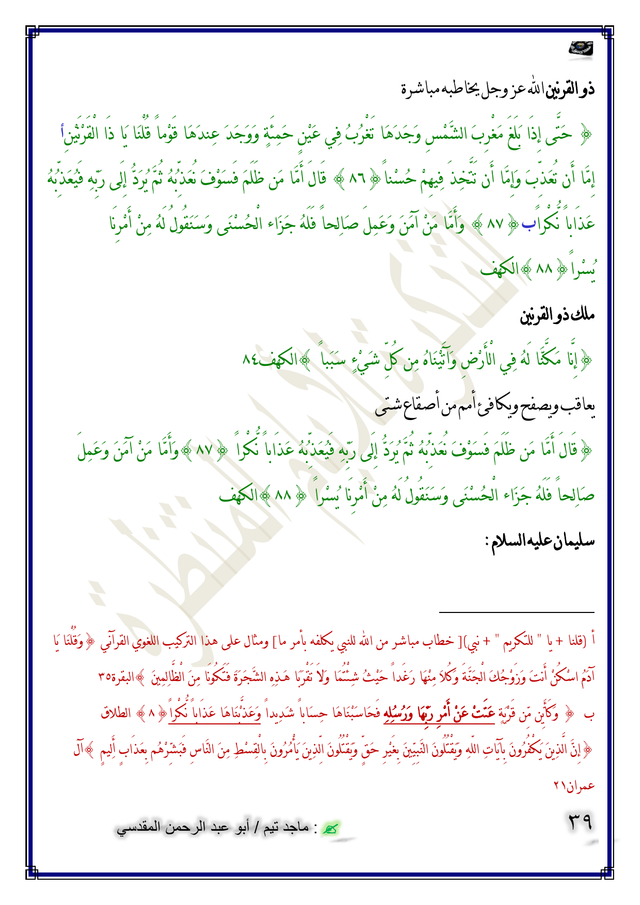 ذو القرنين الله عز وجل يخاطبه مباشرة
﴿ حَتَّى إِذَا بَلَغَ مَغْرِبَ الشَّمْسِ وَجَدَهَا تَغْرُبُ فِي عَيْنٍ حَمِئَةٍ وَوَجَدَ عِندَهَا قَوْماً قُلْنَا يَا ذَا الْقَرْنَيْنِأ
إِمَّا أَن تُعَذِّبَ وَإِمَّا أَن تَتَّخِذَ فِيهِمْ حُسْناً ﴿ ٨٦ ﴾ قَالَ أَمَّا مَن ظَلَمَ فَسَوْفَ نُعَذِّبُهُ ثُمَّ يُرَدُّ إِلَى رَبِّهِ فَيُعَذِّبُهُ
عَذَاباً نُّكْراًب ﴿ ٨٧ ﴾ وَأَمَّا مَنْ آمَنَ وَعَمِلَ صَالِحاً فَلَهُ جَزَاء الْحُسْنَى وَسَنَقُولُ لَهُ مِنْ أَمْرِنَا
يُسْراً ﴿ ٨٨ ﴾ الكهف
ملك ذو القرنين
﴿ إِنَّا مَكَّنَّا لَهُ فِي الْأَرْضِ وَآتَيْنَاهُ مِن كُلِّ شَيْءٍ سَبَباً ﴾ الكهف٨٤
يعاقب ويصفح ويكافئ أمم من أصقاع شتى
﴿ قَالَ أَمَّا مَن ظَلَمَ فَسَوْفَ نُعَذِّبُهُ ثُمَّ يُرَدُّ إِلَى رَبِّهِ فَيُعَذِّبُهُ عَذَاباً نُّكْراً ﴿ ٨٧ ﴾ وَأَمَّا مَنْ آمَنَ وَعَمِلَ
صَالِحاً فَلَهُ جَزَاء الْحُسْنَى وَسَنَقُولُ لَهُ مِنْ أَمْرِنَا يُسْراً ﴿ ٨٨ ﴾ الكهف
سليمان عليه السلام :
أ (قلنا + يا " للتكريم " + نبي)[ خطاب مباشر من الله للنبي يكلفه بأمر ما] ومثال على هذا التركيب اللغوي القرآني ﴿ وَقُلْنَا يَا
آدَمُ اسْكُنْ أَنتَ وَزَوْجُكَ الْجَنَّةَ وَكُلاَ مِنْهَا رَغَداً حَيْثُ شِئْتُمَا وَلاَ تَقْرَبَا هَـذِهِ الشَّجَرَةَ فَتَكُونَا مِنَ الظَّالِمِينَ ﴾ البقرة٣٥
ب ﴿ وَكَأَيِّن مِّن قَرْيَةٍ عَتَتْ عَنْ أَمْرِ رَبِّهَا وَرُسُلِهِ فَحَاسَبْنَاهَا حِسَاباً شَدِيداً وَعَذَّبْنَاهَا عَذَاباً نُّكْراً ﴿ ٨ ﴾ الطلاق
﴿ إِنَّ الَّذِينَ يَكْفُرُونَ بِآيَاتِ اللّهِ وَيَقْتُلُونَ النَّبِيِّينَ بِغَيْرِ حَقٍّ وَيَقْتُلُونَ الَّذِينَ يَأْمُرُونَ بِالْقِسْطِ مِنَ النَّاسِ فَبَشِّرْهُم بِعَذَابٍ أَلِيمٍ ﴾ آل
عمران٢١
٣٩
: ماجد تيم / أبو عبد الرحمن المقدسي